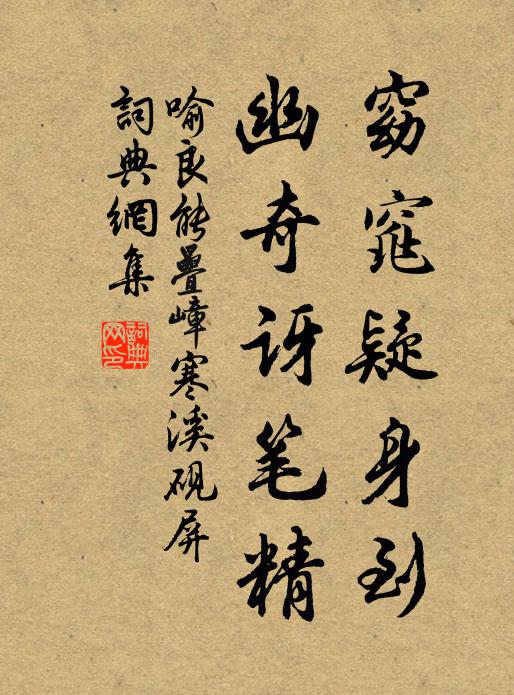 窈窕疑身到
幽奇讶笔精
喻良能疊嶂寒溪硯屏
詞典網集
詞典网印